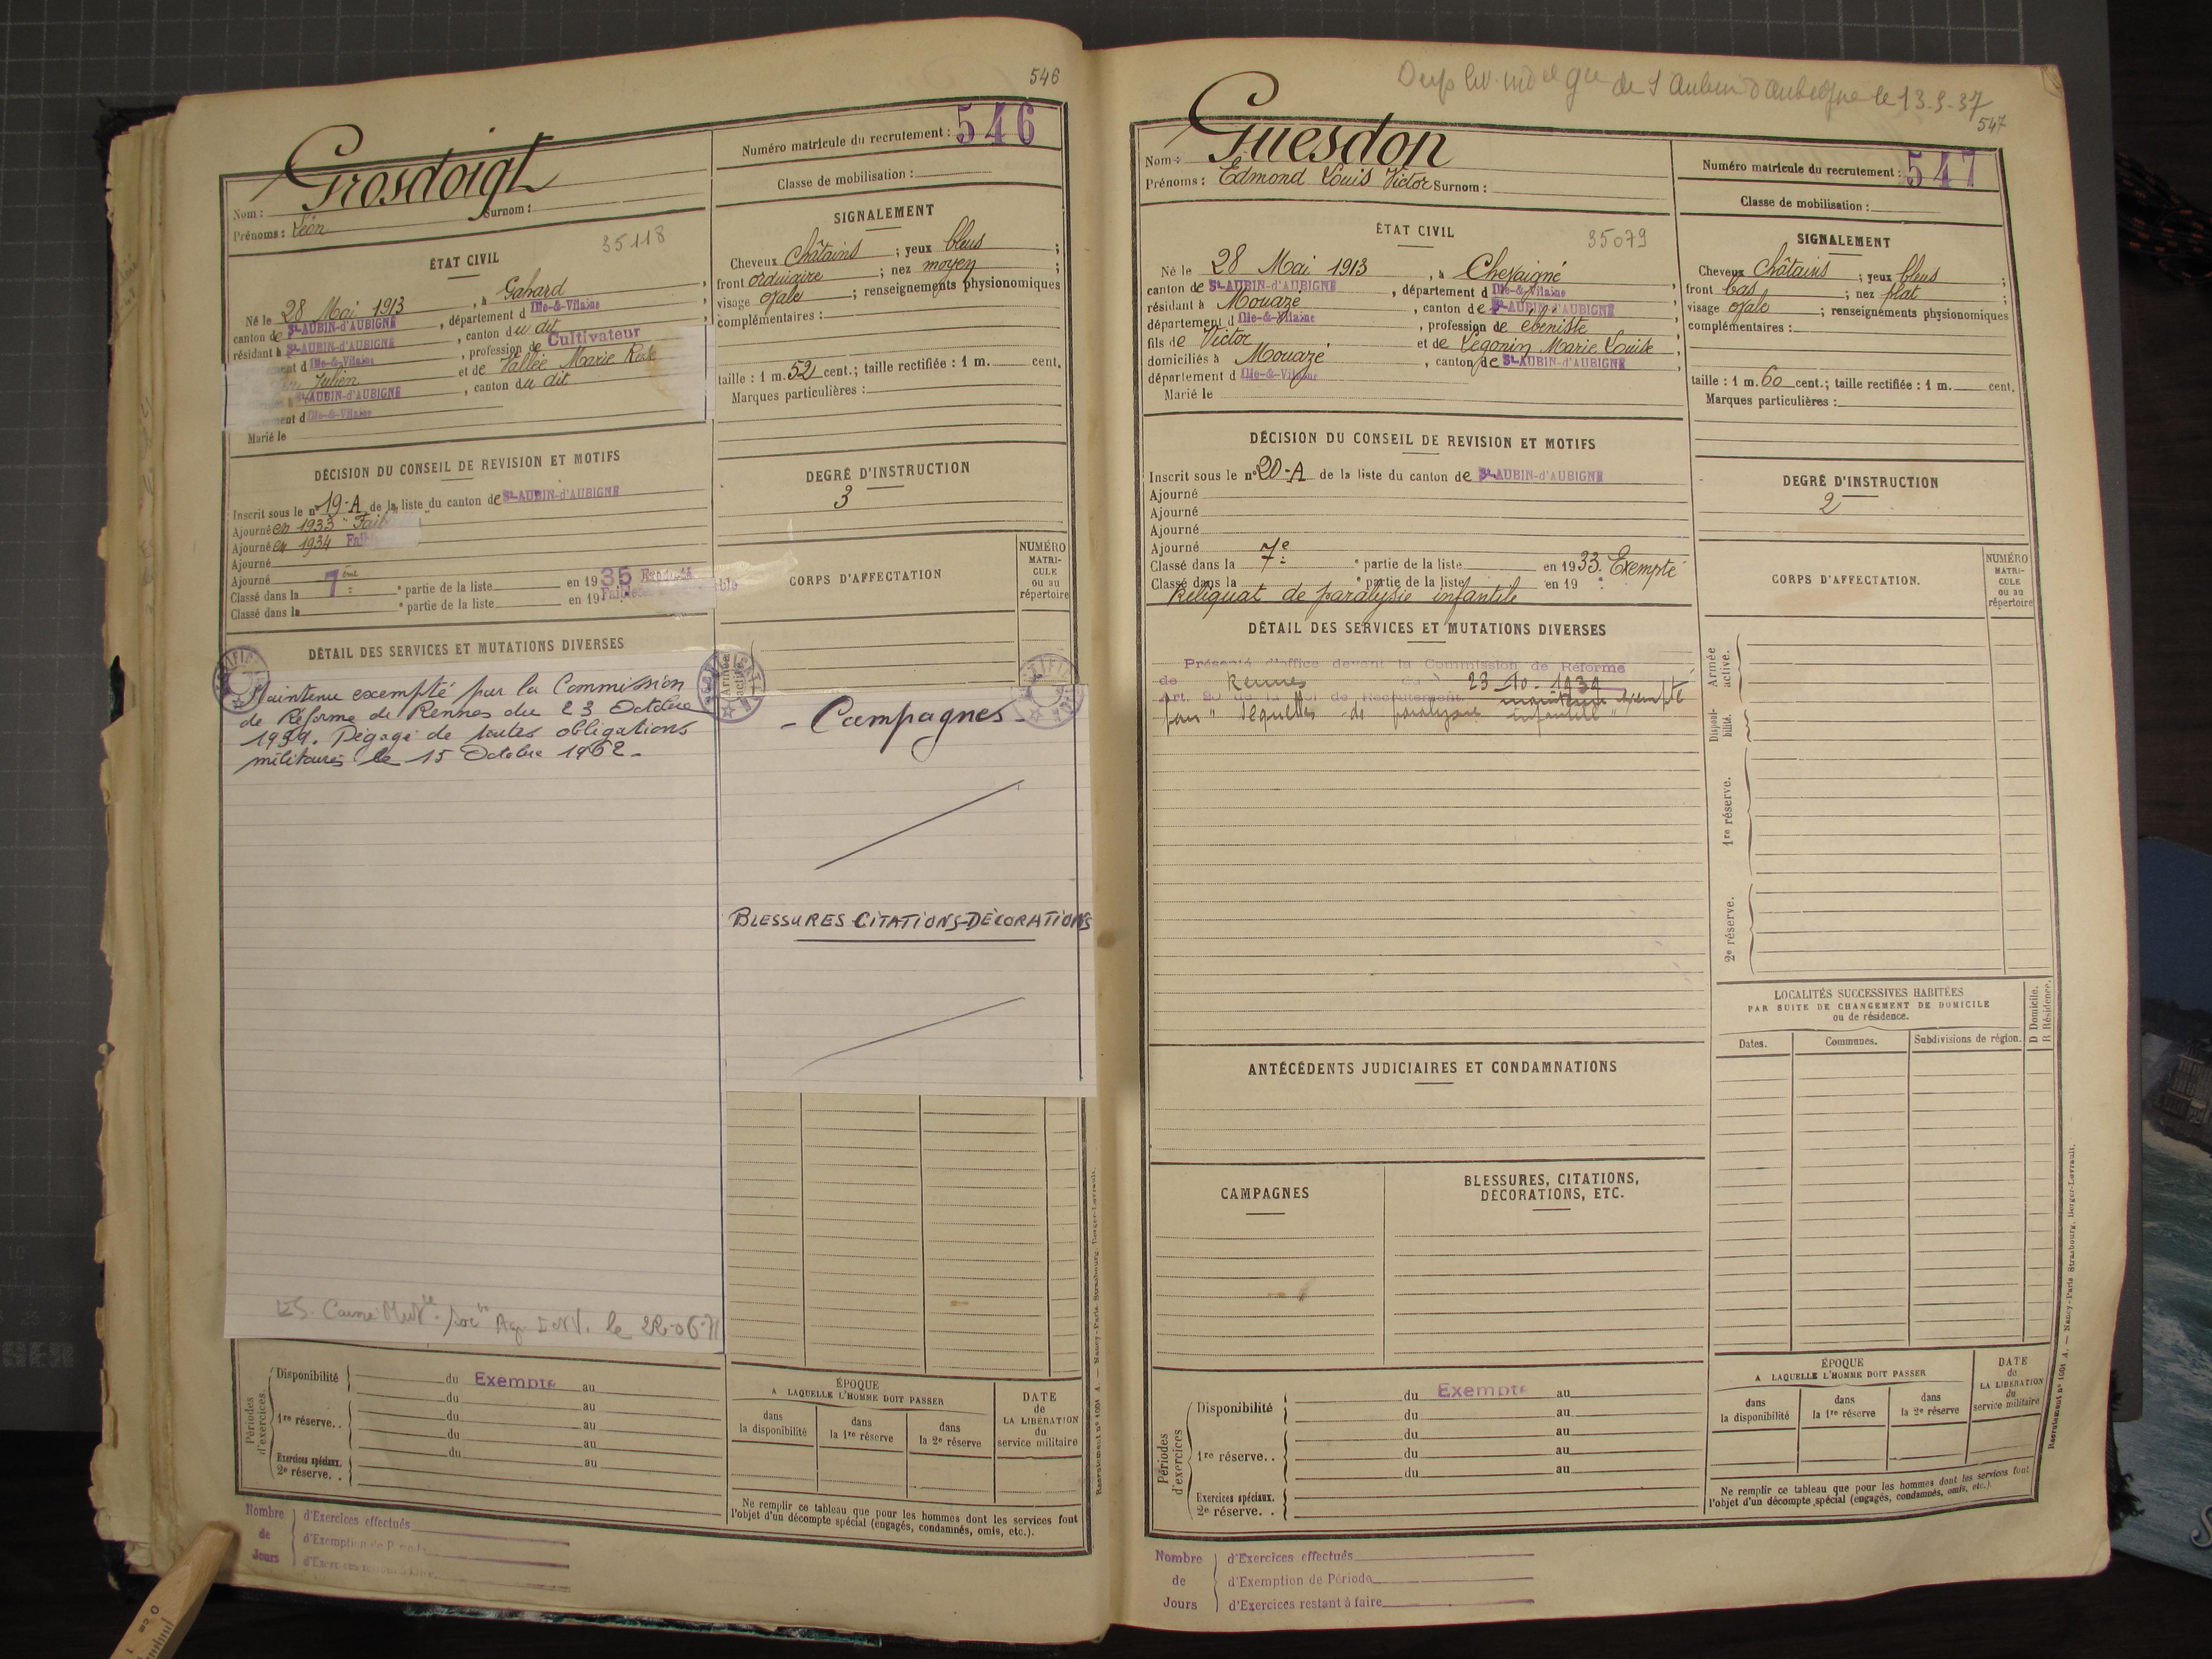 546
Grosdoigt
Nom :
Surnom :
Prénoms : Léon
Numéro matricule du recrutement : 546
Classe de mobilisation :
ÉTAT CIVIL
35118
Né le 28 Mai 1913, à Gahard,
canton de St-AUBIN-d'AUBIGNÉ, département d Ille-&-Vilaine,
résidant à St-AUBIN-d'AUBIGNÉ, canton du dit,
d Ille-&-Vilaine, profession de Cultivateur
Julien et de Vallée Marie Rose
St-AUBIN-d'AUBIGNÉ, canton du dit
d Ille-&-Vilaine
Marié le
SIGNALEMENT
Cheveux châtains ; yeux bleus ;
front ordinaire ; nez moyen ;
visage ovale ; renseignements physionomiques
complémentaires :
taille : 1 m. 52 cent. ; taille rectifiée : 1 m. cent.
Marques particulières :
DÉCISION DU CONSEIL DE REVISION ET MOTIFS
Inscrit sous le n° 19-A de la liste du canton de St-AUBIN-d'AUBIGNÉ
Ajourné en 1933
Ajourné en 1934
Ajourné
Ajourné
Classé dans la 7ème partie de la liste en 1935
Classé dans la e partie de la liste en 19
DEGRÉ D'INSTRUCTION
3
CORPS D'AFFECTATION
NUMÉRO
MATRI-
CULE
ou au
répertoire
DÉTAIL DES SERVICES ET MUTATIONS DIVERSES
Armée
active.
Maintenu exempté par la Commission
de Réforme de Rennes du 23 Octobre
1939. Dégagé de toutes obligations
militaires le 15 Octobre 1962 -
- Campagnes -
BLESSURES-CITATIONS-DÉCORATIONS
Périodes
d'exercices
Disponibilité
du Exempté au
du au
1re réserve. .
du au
du au
Exercices spéciaux.
2e réserve. .
ÉPOQUE
A LAQUELLE L'HOMME DOIT PASSER
dans
la disponibilité
dans
la 1re réserve
dans
la 2e réserve
DATE
de
LA LIBÉRATION
du
service militaire
Ne remplir ce tableau que pour les hommes dont les services font
l'objet d'un décompte spécial (engagés, condamnés, omis, etc.).
Nombre
de
Jours
d'Exercices effectués
d'Exemption de Période
d'Exercices restant à faire
Recrutement n° 1001 A. — Nancy-Paris Strasbourg, Berger-Levrault.
de St Aubin d'Aubigné le 13-9-37
547
Nom : Guesdon
Prénoms : Edmond Louis Victor Surnom :
Numéro matricule du recrutement : 547
Classe de mobilisation :
ÉTAT CIVIL
35079
Né le 28 Mai 1913, à Chevaigné,
canton de St-AUBIN-d'AUBIGNÉ, département d Ille-&-Vilaine,
résidant à Mouazé, canton de St-AUBIN-d'AUBIGNÉ,
département d Ille-&-Vilaine, profession de ébéniste
fils de Victor et de Legonin Marie Louise,
domiciliés à Mouazé, canton de St-AUBIN-d'AUBIGNÉ,
département d Ille-&-Vilaine
Marié le
SIGNALEMENT
Cheveux châtains ; yeux bleus ;
front bas ; nez plat ;
visage ovale ; renseignements physionomiques
complémentaires :
taille : 1 m. 60 cent. ; taille rectifiée : 1 m. cent.
Marques particulières :
DÉCISION DU CONSEIL DE REVISION ET MOTIFS
Inscrit sous le n° 20-A de la liste du canton de St-AUBIN-d'AUBIGNÉ
Ajourné
Ajourné
Ajourné
Ajourné
Classé dans la 7e partie de la liste en 1933. Exempté
Classé dans la e partie de la liste en 19 :
Reliquat de paralysie infantile
DEGRÉ D'INSTRUCTION
2
CORPS D'AFFECTATION.
NUMÉRO
MATRI-
CULE
ou au
répertoire
DÉTAIL DES SERVICES ET MUTATIONS DIVERSES
Présenté d'office devant la Commission de Réforme
de Rennes 23-10-1939
Art. 20 de la loi de Recrutement. maintenu exempté
pour "Séquelles de paralysie infantile"
Armée
active.
Disponi-
bilité.
1re réserve.
2e réserve.
LOCALITÉS SUCCESSIVES HABITÉES
PAR SUITE DE CHANGEMENT DE DOMICILE
ou de résidence.
Dates.
Communes.
Subdivisions de région.
D Domicile.
R Résidence.
ANTÉCÉDENTS JUDICIAIRES ET CONDAMNATIONS
CAMPAGNES
BLESSURES, CITATIONS,
DÉCORATIONS, ETC.
Périodes
d'exercices
Disponibilité
du Exempté au
du au
1re réserve. .
du au
du au
du au
Exercices spéciaux.
2e réserve. .
ÉPOQUE
A LAQUELLE L'HOMME DOIT PASSER
dans
la disponibilité
dans
la 1re réserve
dans
la 2e réserve
DATE
de
LA LIBÉRATION
du
service militaire
Ne remplir ce tableau que pour les hommes dont les services font
l'objet d'un décompte spécial (engagés, condamnés, omis, etc.).
Nombre
de
Jours
d'Exercices effectués
d'Exemption de Période
d'Exercices restant à faire
Recrutement n° 1001 A. — Nancy-Paris Strasbourg, Berger-Levrault.